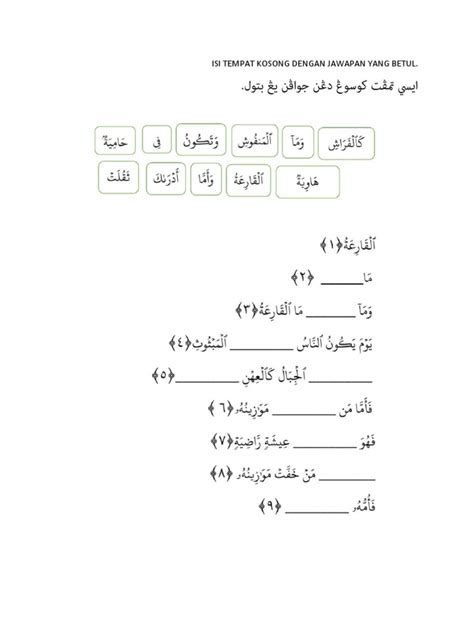 ISI TEMPAT KOSONG DENGAN JAWAPAN YANG BETUL.
ايسي تمڤت كوسوڠ دڠن جواڤن يڠ بتول.
كَٱلْفَرَاشِ وَمَآ ٱلْمَنفُوشِ وَتَكُونُ فِى حَامِيَةٌۢ
هَاوِيَةٌ ٱلْقَارِعَةُ وَأَمَّا أَدْرَىٰكَ ثَقُلَتْ
ٱلْقَارِعَةُ ﴿١﴾
مَا______ ﴿٢﴾
وَمَآ ________ مَا ٱلْقَارِعَةُ ﴿٣﴾
يَوْمَ يَكُونُ ٱلنَّاسُ __________ ٱلْمَبْثُوثِ ﴿٤﴾
__________ ٱلْجِبَالُ كَٱلْعِهْنِ __________ ﴿٥﴾
فَأَمَّا مَن __________ مَوَٰزِينُهُۥ ﴿٦﴾
فَهُوَ __________ عِيشَةٍ رَّاضِيَةٍ ﴿٧﴾
__________ مَنْ خَفَّتْ مَوَٰزِينُهُۥ ﴿٨﴾
فَأُمُّهُۥ __________ ﴿٩﴾